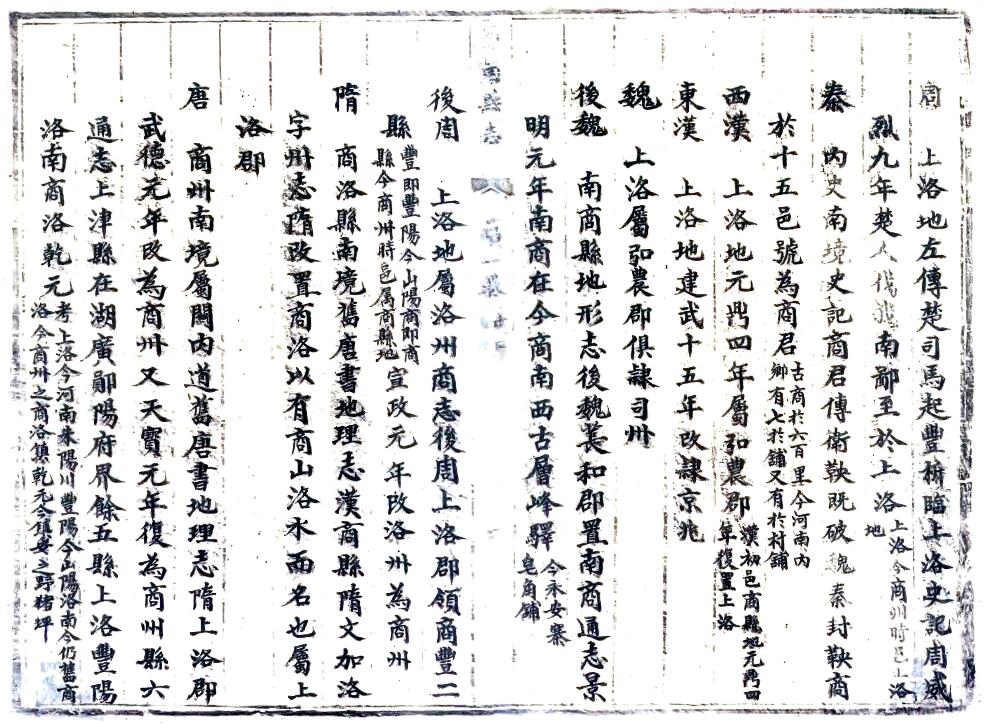 周　上洛地左傳楚司馬起豐析臨上洛史記周威
烈九年楚人伐我南鄙至於上洛上洛今商州時邑上洛地
秦　內史南境史記商君傳衛鞅既破魏秦封鞅商
於十五邑號為商君古商於六百里今河南內鄉有七於舖又有於村舖
西漢　上洛地元鼎四年屬弘農郡漢初邑商縣地元鼎四年復置上洛
東漢　上洛地建武十五年改隸京兆
魏　上洛屬弘農郡俱隸司州
後魏　南商縣地形志後魏萇和郡置南商通志景
明元年南商在今商南西古層峰驛今永安寨皂角舖
後周　上洛地屬洛州商志後周上洛郡領商豐二
縣豐即豐陽今山陽商即商縣今商州時邑属商縣地宣政元年改洛州為商州
隋　商洛縣南境舊唐書地理志漢商縣隋文加洛
字州志隋改置商洛以有商山洛水而名也屬上
洛郡
唐　商州南境屬關內道舊唐書地理志隋上洛郡
武德元年改為商州又天寳元年復為商州縣六
通志上津縣在湖廣鄖陽府界餘五縣上洛豐陽
洛南商洛乾元考上洛今河南朱陽川豐陽今山陽洛南今仍舊商洛今商州之商洛鎮乾元今鎮安之野猪坪
商縣志